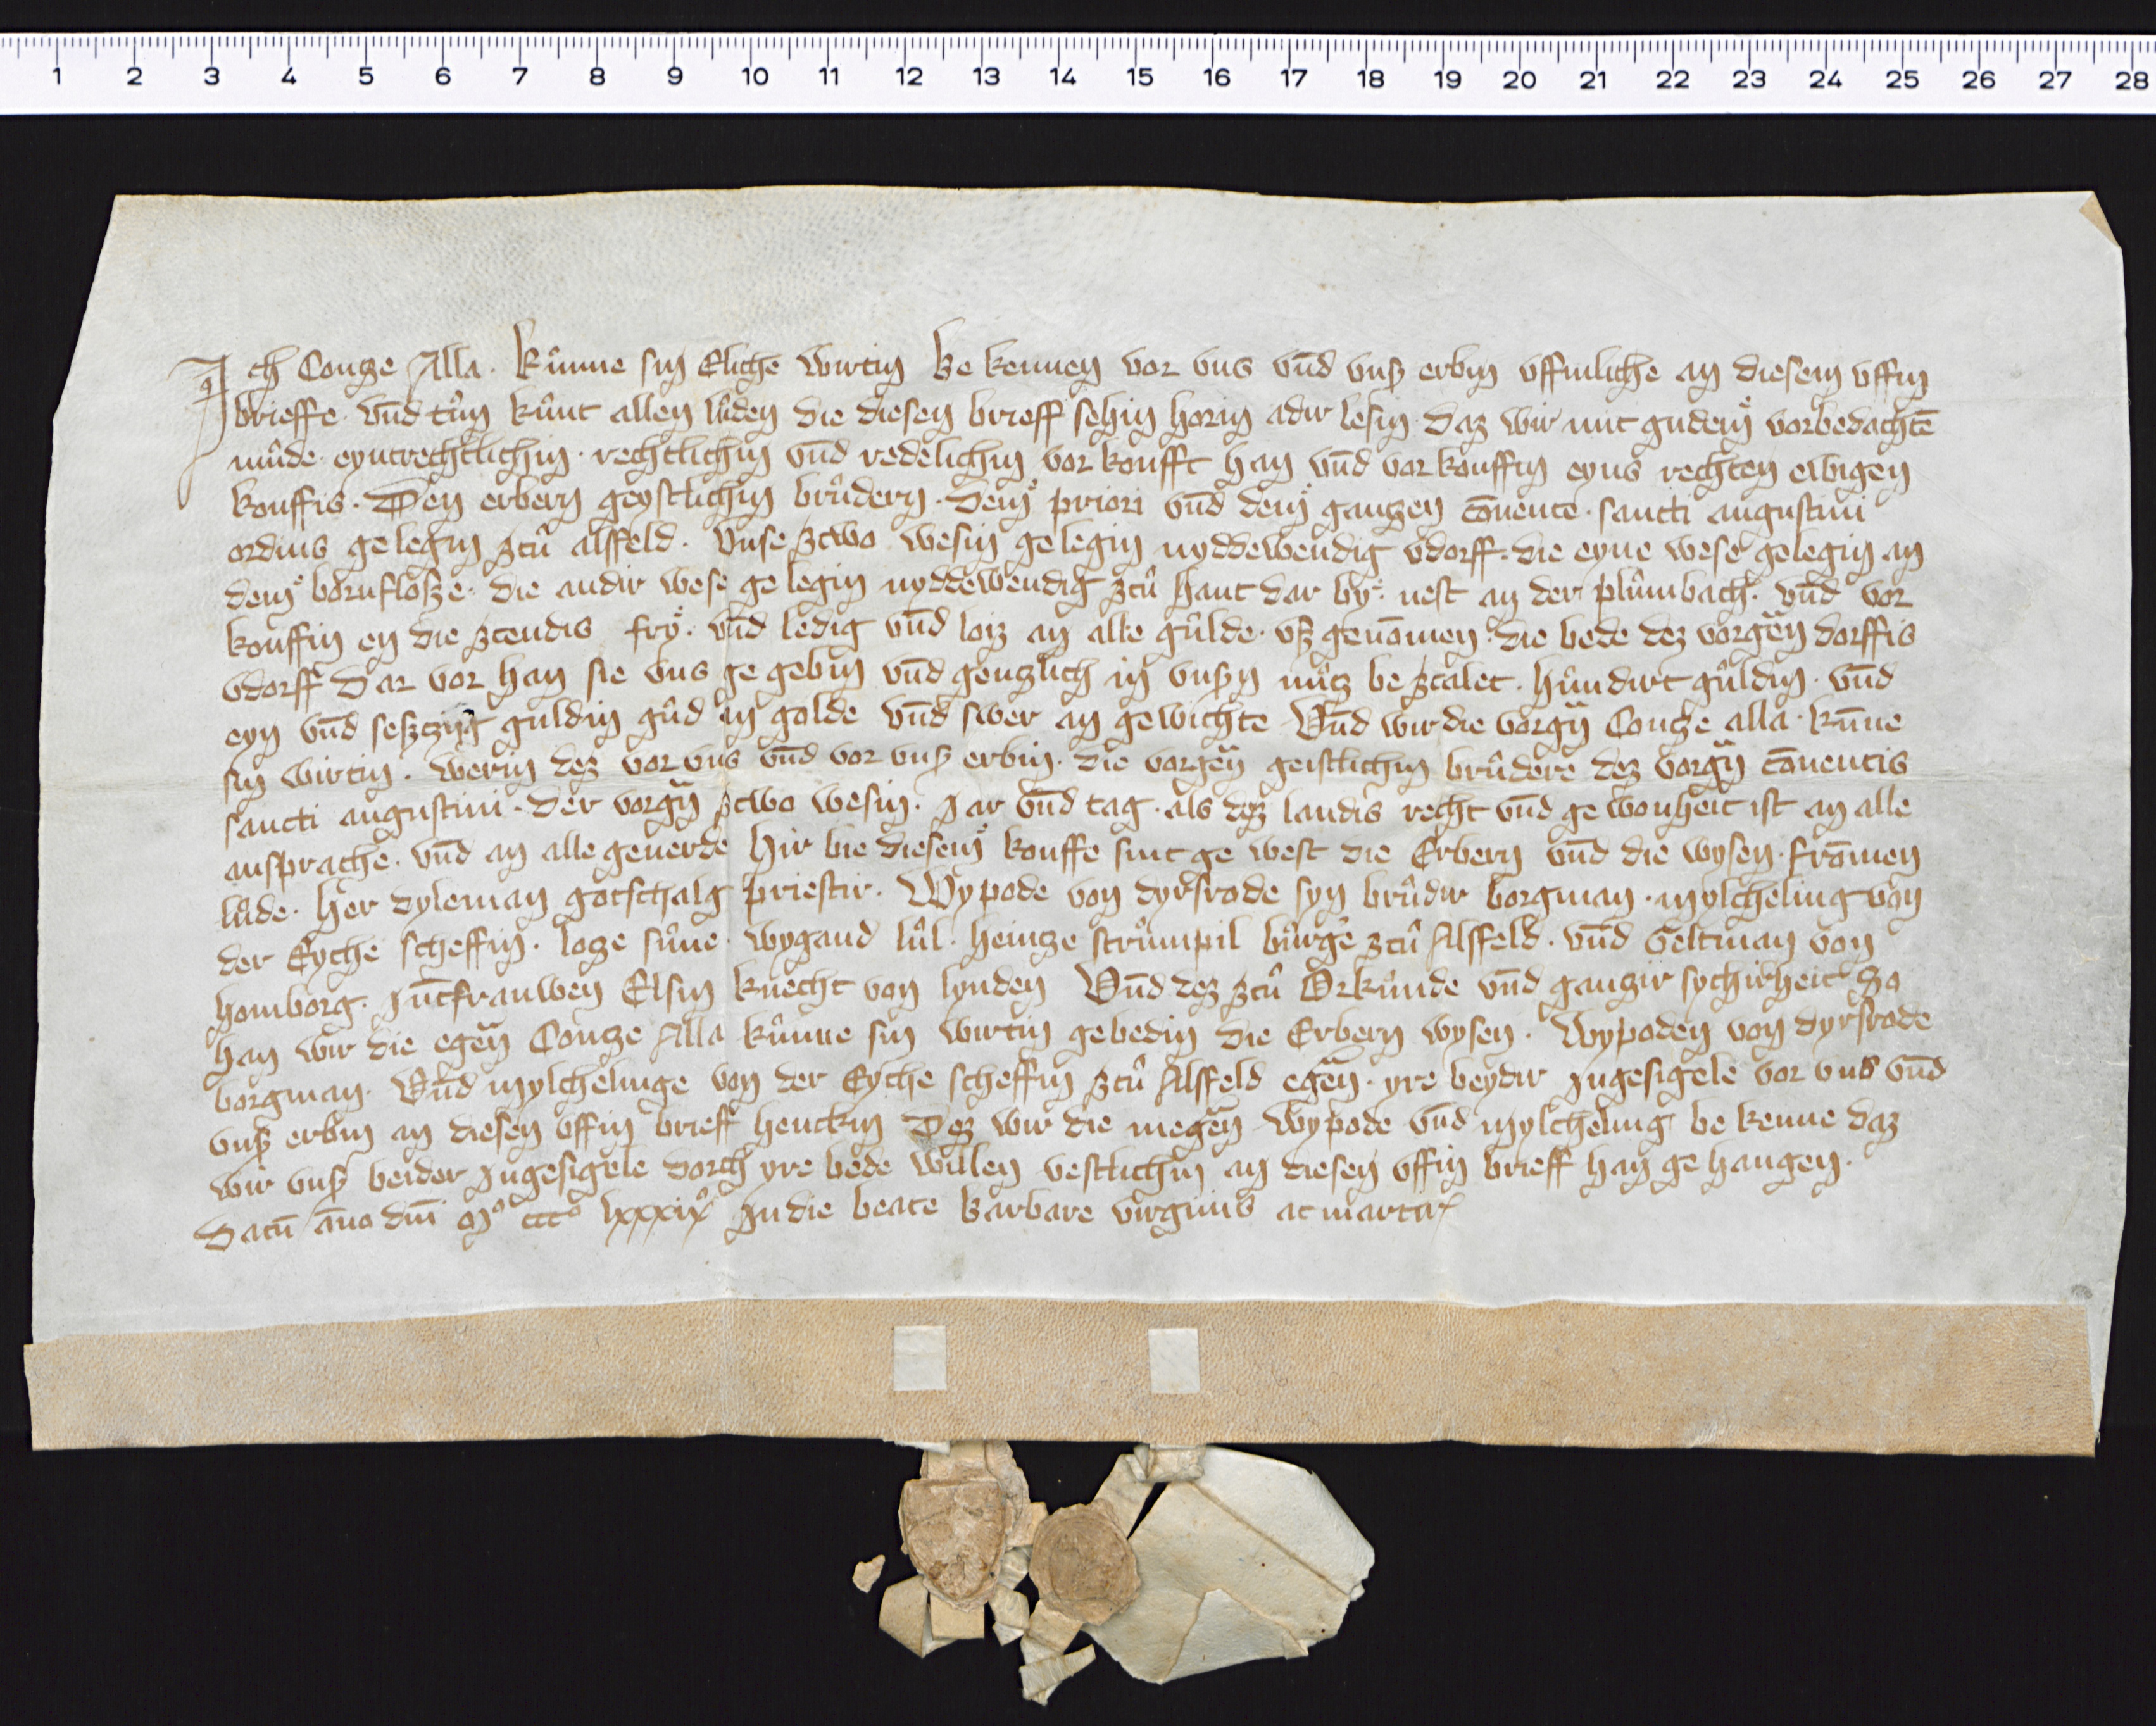 1 2 3 4 5 6 7 8 9 10 11 12 13 14 15 16 17 18 19 20 21 22 23 24 25 26 27 28
Ich Contze Alla · kůnne sin Eliche wirtin be kennen vor vns vnd vnß erbin vffinliche an diesem vffin
brieffe · vnd tůn kůnt allen lůden die diesen brieff sehin horin adir lesin daz wir mit gudem vorbedachtē
můde eyntrechtlichin · rechtlichin vnd redelichin vor koufft han vnd vor kouffin eyns rechten ewigen
kouffis · Den erbern geystlichin brůdern · dem priori vnd dem gantzen cōuente · sancti augustini
ordins gelegin zců alsfeld · Vnse zcwo wesin gelegin nyddewendig vdorff · die eyne wese gelegin an
dem bornfloße · die andir wese ge legin nyddewendig zců hant dar by · nest an der plůmbach · vnd vor
kouffin en die zcendis fry · vnd ledig vnd loiz an alle gůlde · vß genōmen · die bede dez vorgēn dorffis
vdorff Dar vor han sie vns ge gebin vnd gentzlich in vnßn nůtz be zcalet · hůndirt gůldin · vnd
eyn vnd seßtzijg guldin gůd in golde vnd swer an gewichte Vnd wir die vorgn̄ Contze alla · kūne
sin wirtin · werin dez vor vns vnd vor vnß erbin · die vorgēn geistlichin brůdere dez vorgn̄ cōuentis
sancti augustini · der vorgn̄ zcwo wesin · Jar vnd tag · als dez landis recht vnd ge wonheit ist an alle
ansprache · vnd an alle geuerde Hir bie diesem kouffe sint ge west die Erbern vnd die wysen · frōmen
lůde · Her dyleman gotschalg priestir · Wypode von dyrsrode syn brůdir borgman · mylcheling von
der Eyche scheffin · lotze sůne · wygand lůl · heintze strůmpil bůrg̾e zců Alsfeld · vnd Geltman von
homborg · Jūtfrauwen Elsin knecht von lynden Vnd dez zců Orkůnde vnd gantzir sychirheit So
han wir die egēn Contze Alla kůnne sin wirtin gebedin die Erbern wysen · Wypoden von dyrsrode
borgman · Vnd mylchelinge von der Eyche scheffin zců Alsfeld egēn · yre beydir Jngesigele vor vns vnd
vnß erbin an diesen vffin brieff henckin Dez wir die megēn Wypode vnd mylcheling be kenne daz
wir vnß beider Jngesigele dorch yre bede willen vestlichin an diesen vffin brieff han ge hangen ·
Datū āno dnī mº cccº lxxxixº Jn die beate barbare virginis ac martir̄